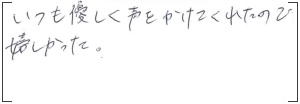 いつも優しく声をかけてくれたので
嬉しかった。